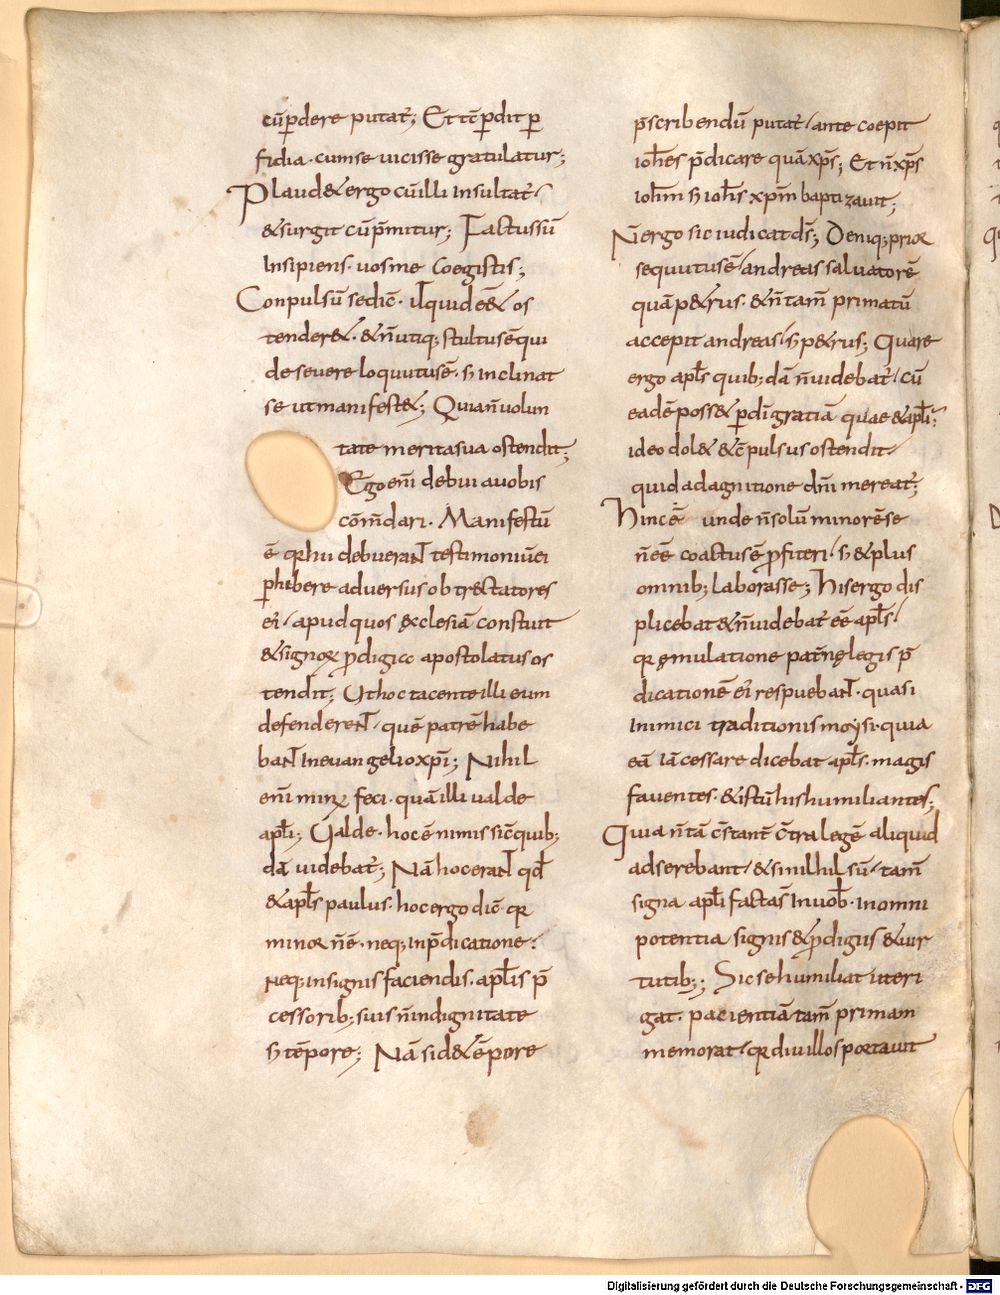 cū ꝑdere putat᷒; Et tc̄ ꝑdit ꝑ
fidia · cum se uicisse gratulatur;
Plaud& ergo cū illi insultat᷒
& surgit cū p̄mitur; Factus sū
Insipiens · uos me coegistis;
Conpulsū se dic̄ · ił quid eē& os
tender& · & n̄ utiq; stultus ē qui
de se uere loquutus ē · ꞩ inclinat
se ut manifest&; Quia n̄ uolun
tate merita sua ostendit;
Ego eni̅ debui a uobis
cōm̄dari · Manifestū
ē qr hii debuerant testimoniū ei
ꝑhibere aduersus obtrectatores
ei᷒ / apud quos ęcclesiā constuit
& signoꝝ ꝓdigiis apostolatus os
tendit; Ut hoc tacente illi eum
defenderent / quē patrē habe
bant In euangelio xp̄i; Nihil
eni̅ minꝰ feci · quā illi ualde
apłi; Ualde · hoc ē nimis sic̄ quib;
dā uidebat᷒; Nā hoc erant qđ
& apłs paulus · hoc ergo dic̄ · qr
minor n̄ ē · neq; in p̄dicatione ·
Neq; in signis faciendis · apłis p̄
cessorib; suis n̄ indignitate
ꞩ tēpore; Nā si d& ēpore
p̄scribendū putat᷒ / ante coepit
ioħes p̄dicare quā xp̄s; Et n̄ xp̄s
ioħm ꞩ ioħs xp̄m baptizauit;
N̄ ergo sic iudicat ds̄; Deniq; prior
sequutus ē / andreas saluatorē
quā p&rus · & n̄ tam̄ primatū
accepit andreas / ꞩ p&rus; Quare
ergo apłs quib; dā n̄ uidebat᷒ / cū
eadē poss& ꝑ dī gratiā quae & apłi;
ideo dol& & c̄pulsus ostendit
quid ad agnitione dn̄i mereat᷒;
Hinc ē unde n̄ solū minorē se
n̄ eē coactus ē ꝓfiteri / ꞩ & plus
omnib; laborasse; His ergo dis
plicebat & n̄ uidebat᷒ eē apłs /
qr ęmulatione pat̄nę legis p̄
dicationē ei᷒ respuebant · quasi
Inimici traditionis moysi · quia
eā iā cessare dicebat apłs · magis
fauentes · & istū his humiliantes;
Quia n̄ tā c̄stant᷒ c̄tra legē aliquid
adserebant / & si nihil sū / tam̄
signa apłi facta s̄ In uoƀ · In omni
potentia signis & ꝓdigiis & uir
tutib;; Sic se humiliat ut eri
gat · pacientiā tam̄ primam
memorat / qr diu illos portauit
Digitalisierung gefördert durch die Deutsche Forschungsgemeinschaft - DFG